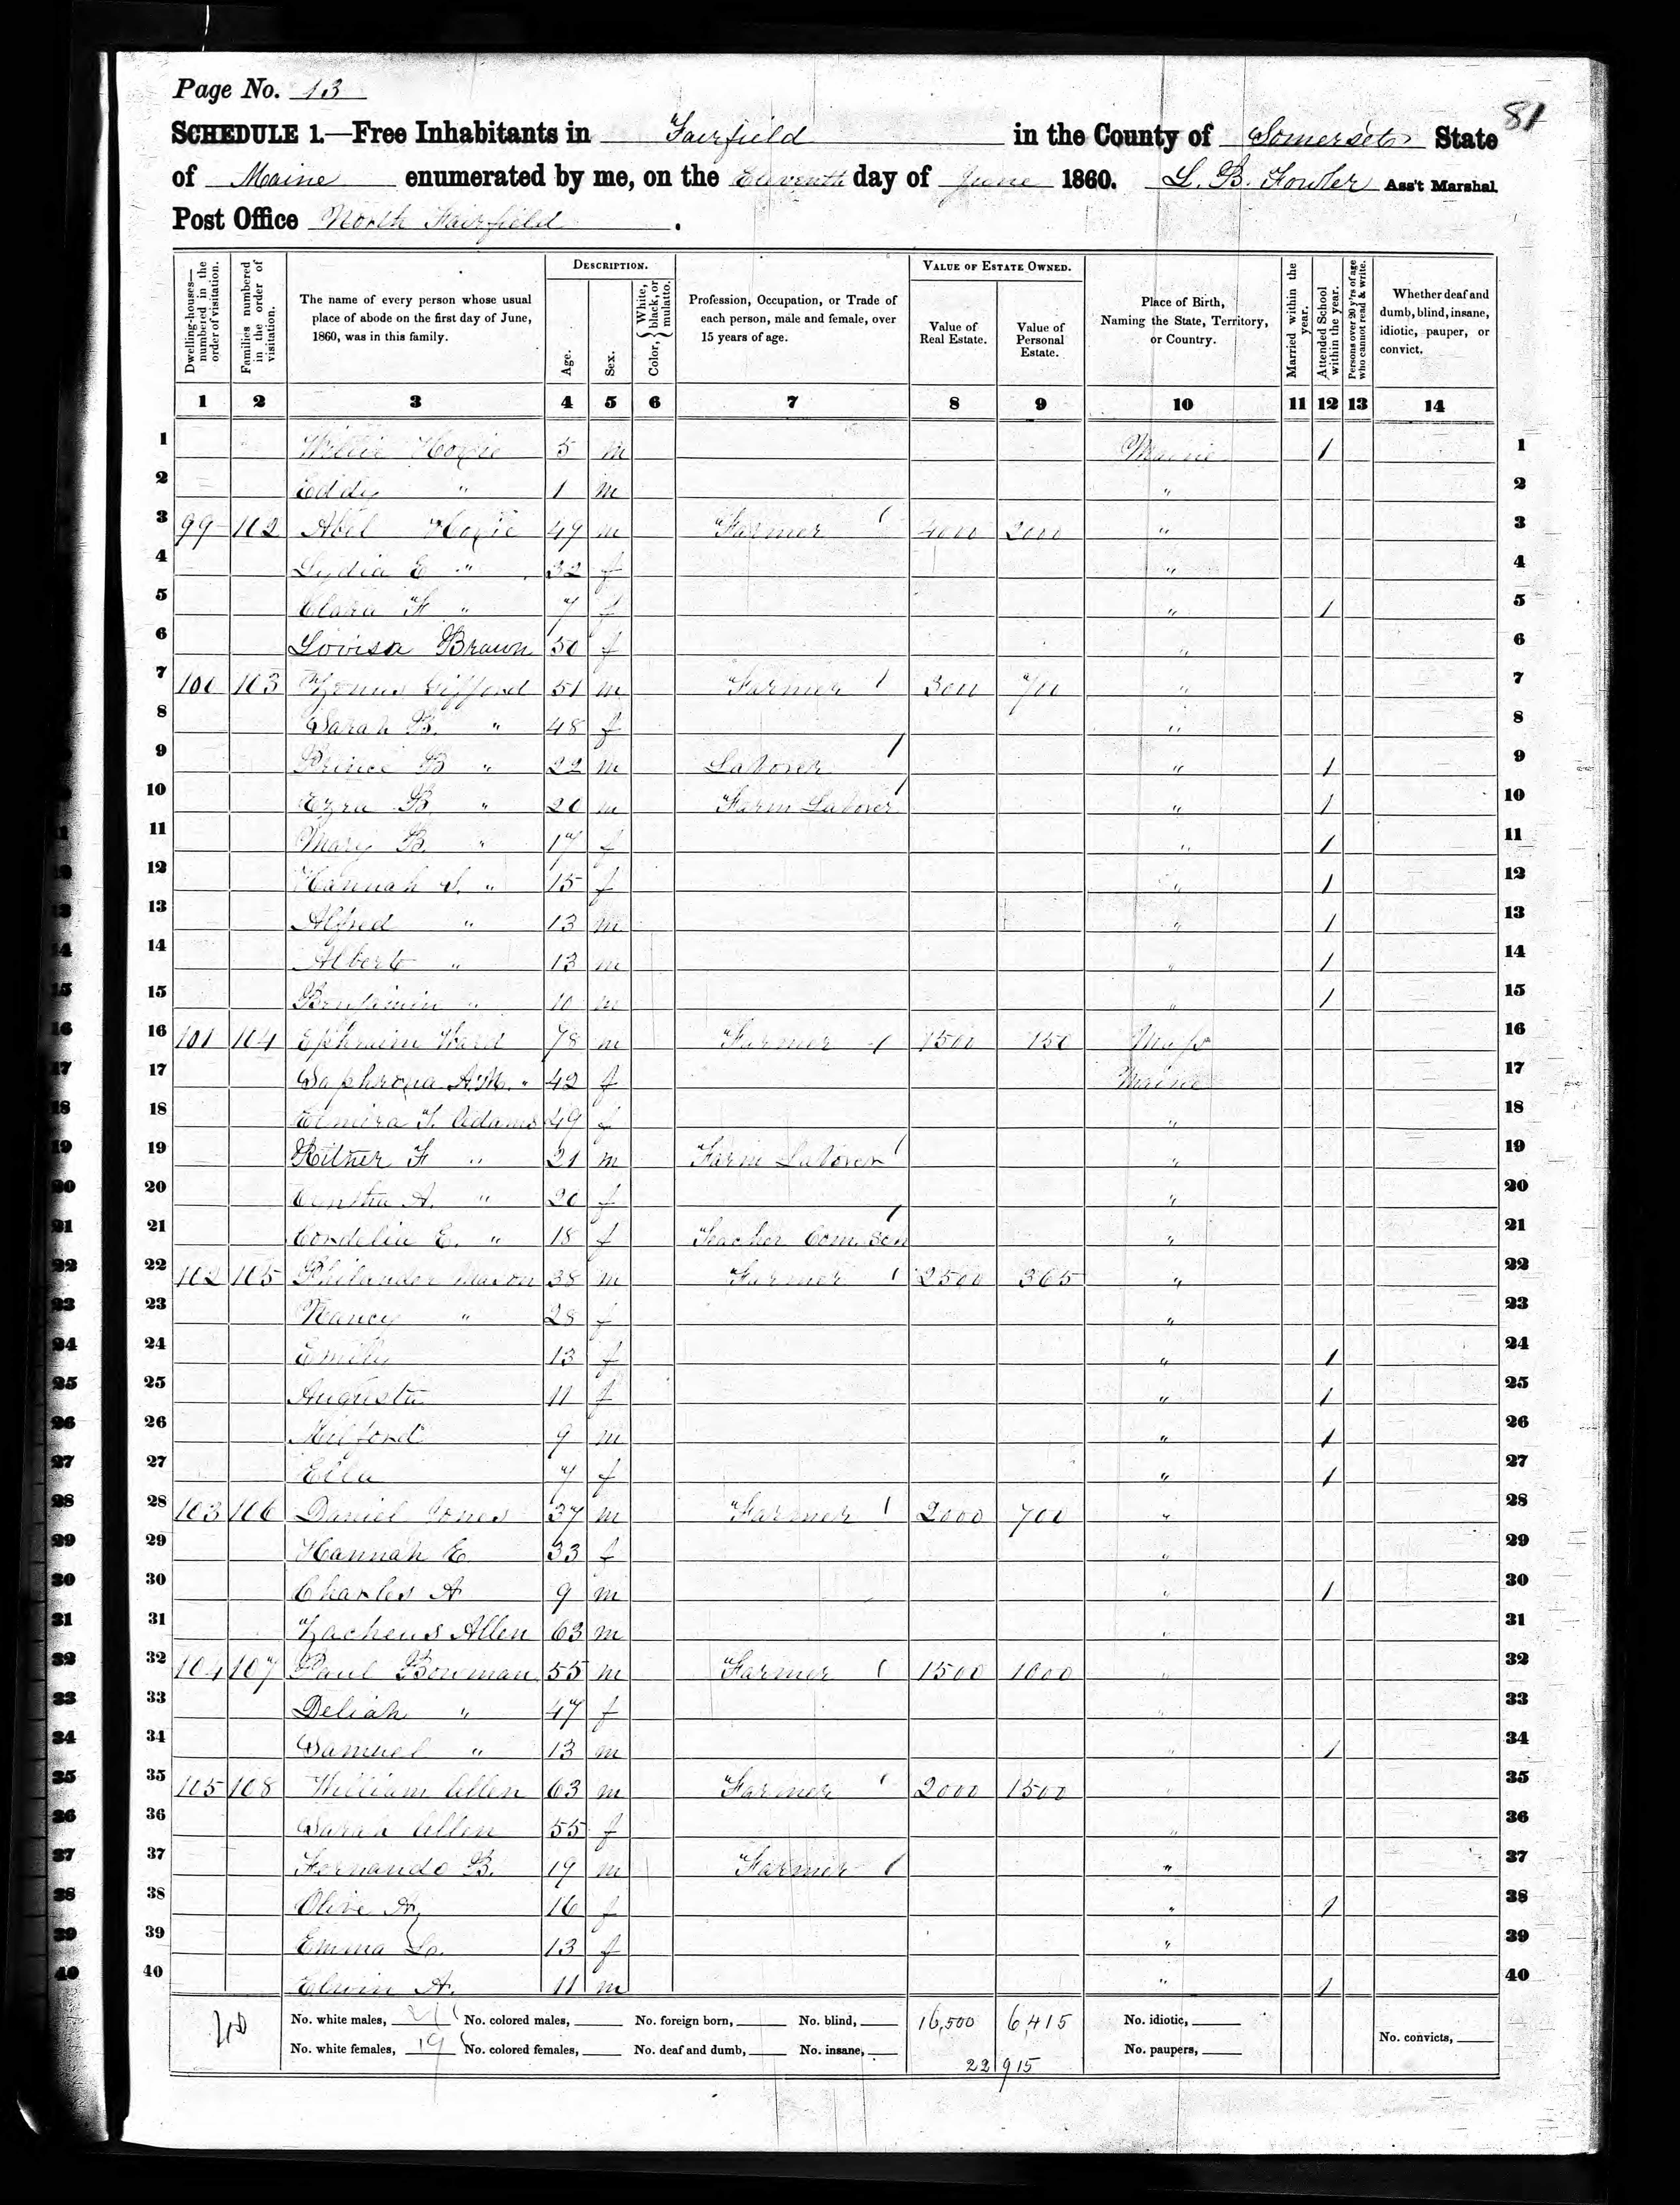 81
Page No. 13
SCHEDULE 1.—Free Inhabitants in Fairfield in the County of Somerset State
of Maine enumerated by me, on the Eleventh day of June 1860. L. B. Fowler Ass't Marshal.
Post Office North Fairfield.
Dwelling-houses—numbered in the order of visitation.
Families numbered in the order of visitation.
The name of every person whose usual place of abode on the first day of June, 1860, was in this family.
DESCRIPTION.
Age.
Sex.
Color, { White, black, or mulatto.
Profession, Occupation, or Trade of each person, male and female, over 15 years of age.
VALUE OF ESTATE OWNED.
Value of Real Estate.
Value of Personal Estate.
Place of Birth, Naming the State, Territory, or Country.
Married within the year.
Attended School within the year.
Persons over 20 y'rs of age who cannot read & write.
Whether deaf and dumb, blind, insane, idiotic, pauper, or convict.
1 2 3 4 5 6 7 8 9 10 11 12 13 14
1 Willie Hoxie 5 m Maine / 1
2 Eddy " 1 m " 2
3 99 102 Abel Hoxie 47 m Farmer / 4000 2000 " 3
4 Lydia E " 32 f " 4
5 Clara F " 7 f " / 5
6 Lovisa Brawn 50 f " 6
7 100 103 Gifford 51 m Farmer / 3000 700 " 7
8 Sarah B. " 48 f " 8
9 Prince B " 22 m Laborer / " / 9
10 Ezra B " 20 m Farm Laborer / " / 10
11 Mary B. " 17 f " / 11
12 Hannah S. " 15 f " / 12
13 Alfred " 13 m " / 13
14 Albert " 13 m " / 14
15 Benjamin " 10 m " / 15
16 101 104 Ephraim Ward 78 m Farmer / 1500 150 Mass 16
17 Saphrona A.M. " 42 f Maine 17
18 Elmira T. Adams 49 f " 18
19 Ritner F " 21 m Farm Laborer / " 19
20 A. " 20 f " 20
21 Cordelia E. " 18 f Teacher Com. Sch / " 21
22 102 105 Philander Mason 38 m Farmer / 2500 365 " 22
23 Nancy " 28 f " 23
24 Emily 13 f " / 24
25 Augusta 11 f " / 25
26 Milford 9 m " / 26
27 Ella 7 f " / 27
28 103 106 Daniel Jones 37 m Farmer / 2000 700 " 28
29 Hannah E 33 f " 29
30 Charles A 9 m " / 30
31 Zacheus Allen 63 m " 31
32 104 107 Paul Bowman 55 m Farmer / 1500 1000 " 32
33 Deliah " 47 f " 33
34 Samuel " 13 m " / 34
35 105 108 William Allen 63 m Farmer / 2000 1500 " 35
36 Sarah Allen 55 f " 36
37 Fernando B. 19 m Farmer / " 37
38 Olive A. 16 f " / 38
39 Emma 13 f " 39
40 Elwin A. 11 m " / 40
40 No. white males, 21 No. colored males, No. foreign born, No. blind, 16,500 6,415 No. idiotic,
No. white females, 19 No. colored females, No. deaf and dumb, No. insane, No. paupers, No. convicts,
22 915